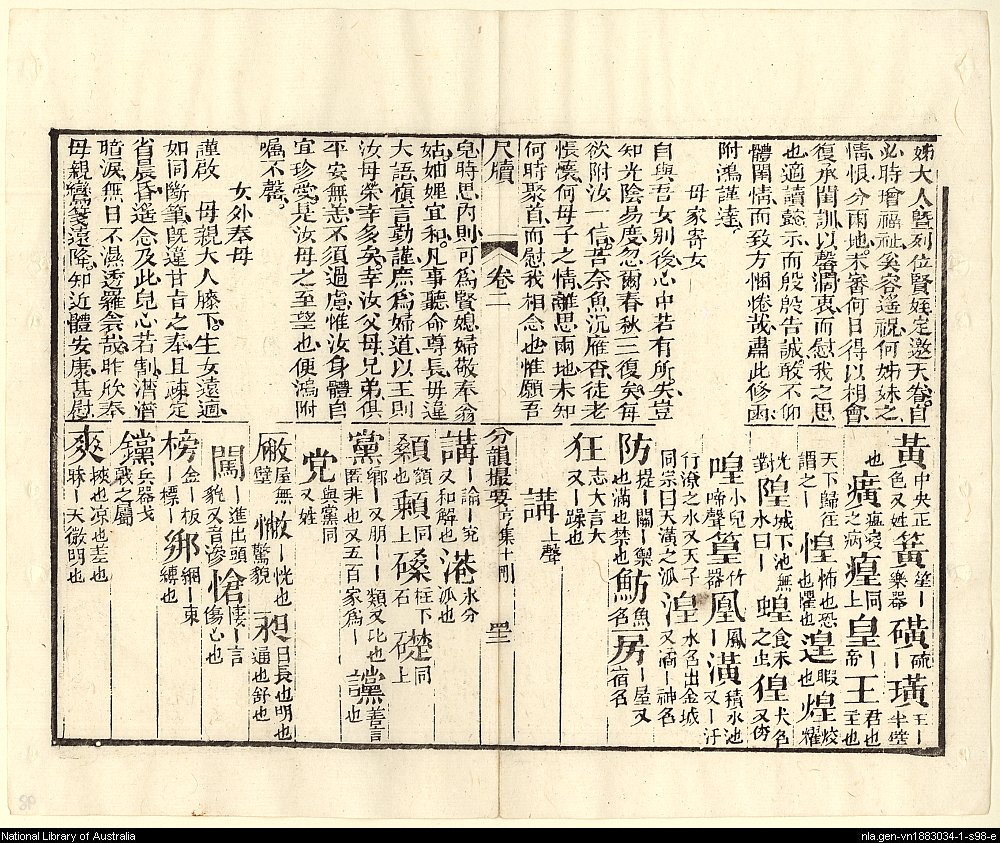 姊大人曁列位賢姪定邀天眷自
必時增福祉矣容遥視何姊妹之
情恨分兩地未審何日得以相會
復承閨訓以馨洞衷而慰我之思
也適讀懿示而殷殷告誠敢不仰
體閨情而致方悃惓哉肅此修函
附鴻謹達
母家寄女
自與吾女別後心中若有所失豈
知光陰易度忽爾春秋三復矣每
欲附汝一信苦奈魚沉雁杳徒老
懷懷何母子之情離思兩地未知
何時聚首而慰我相念也惟願吾
尺牘 卷二
兒時思內則可爲賢媳婦敬奉翁
姑妯娌宜和凡事聽命尊長毋違
大語慎言勤謹庶爲婦道以王則
汝母榮幸多矣幸汝父母兄弟俱
平安無恙不須過慮惟汝身體自
宜珍愛是汝母之至望也便鴻附
囑不罄
女外奉母
謹啟 母親大人膝下生女遠適
如同斷筆旣違甘旨之奉且疎定
省晨昏遙念及此兒心若割潸潸
暗淚無日不濕透羅衾哉昨欣奉
母親鸞箋遠降知近體安康甚慰
黃中央正色又姓 簧笙丨樂器 磺丨硫 璜玉丨半璧
也 癀丨之病 瘟寑 瘟同上 皇丨帝 王君也主也
天下歸往謂之丨 惶怖也恐也懼也 遑暇也 煌熒耀
光丨對 隍城下池無水曰丨 蝗食禾之虫 猩犬色又傍
喤小兒啼聲 篁竹器 凰鳳丨 潢積水池又丨汙
行潦之水又天子同宗曰天潢之派 湟水色出金城又滴丨神名
防丨提丨關丨禦也滿也禁也 魴魚名 房丨屋又宿名
狂志大言大又丨躁也
講上聲
分韻撮要 亨集十冊 四十三
講丨論丨究又和解也 港水分派也
顙額丨也 顡同上 磉柱下石 礎同上
黨鄉丨又朋丨類又比也匿非也又五百家爲丨 讜善言也
党與黨同又姓
廠屋無壁 惝丨恍也驚貌 昶日長也明也通也舒也
闖丨進出頭貌又音滲 愴悽丨言傷心也
榜金丨板丨標丨 綁綑丨束縛也
钂兵器戈戟之屬
爽挾也凉也差也昧丨天微明也
National Library of Australia
nla.gen-vn1883034-1-s98-e